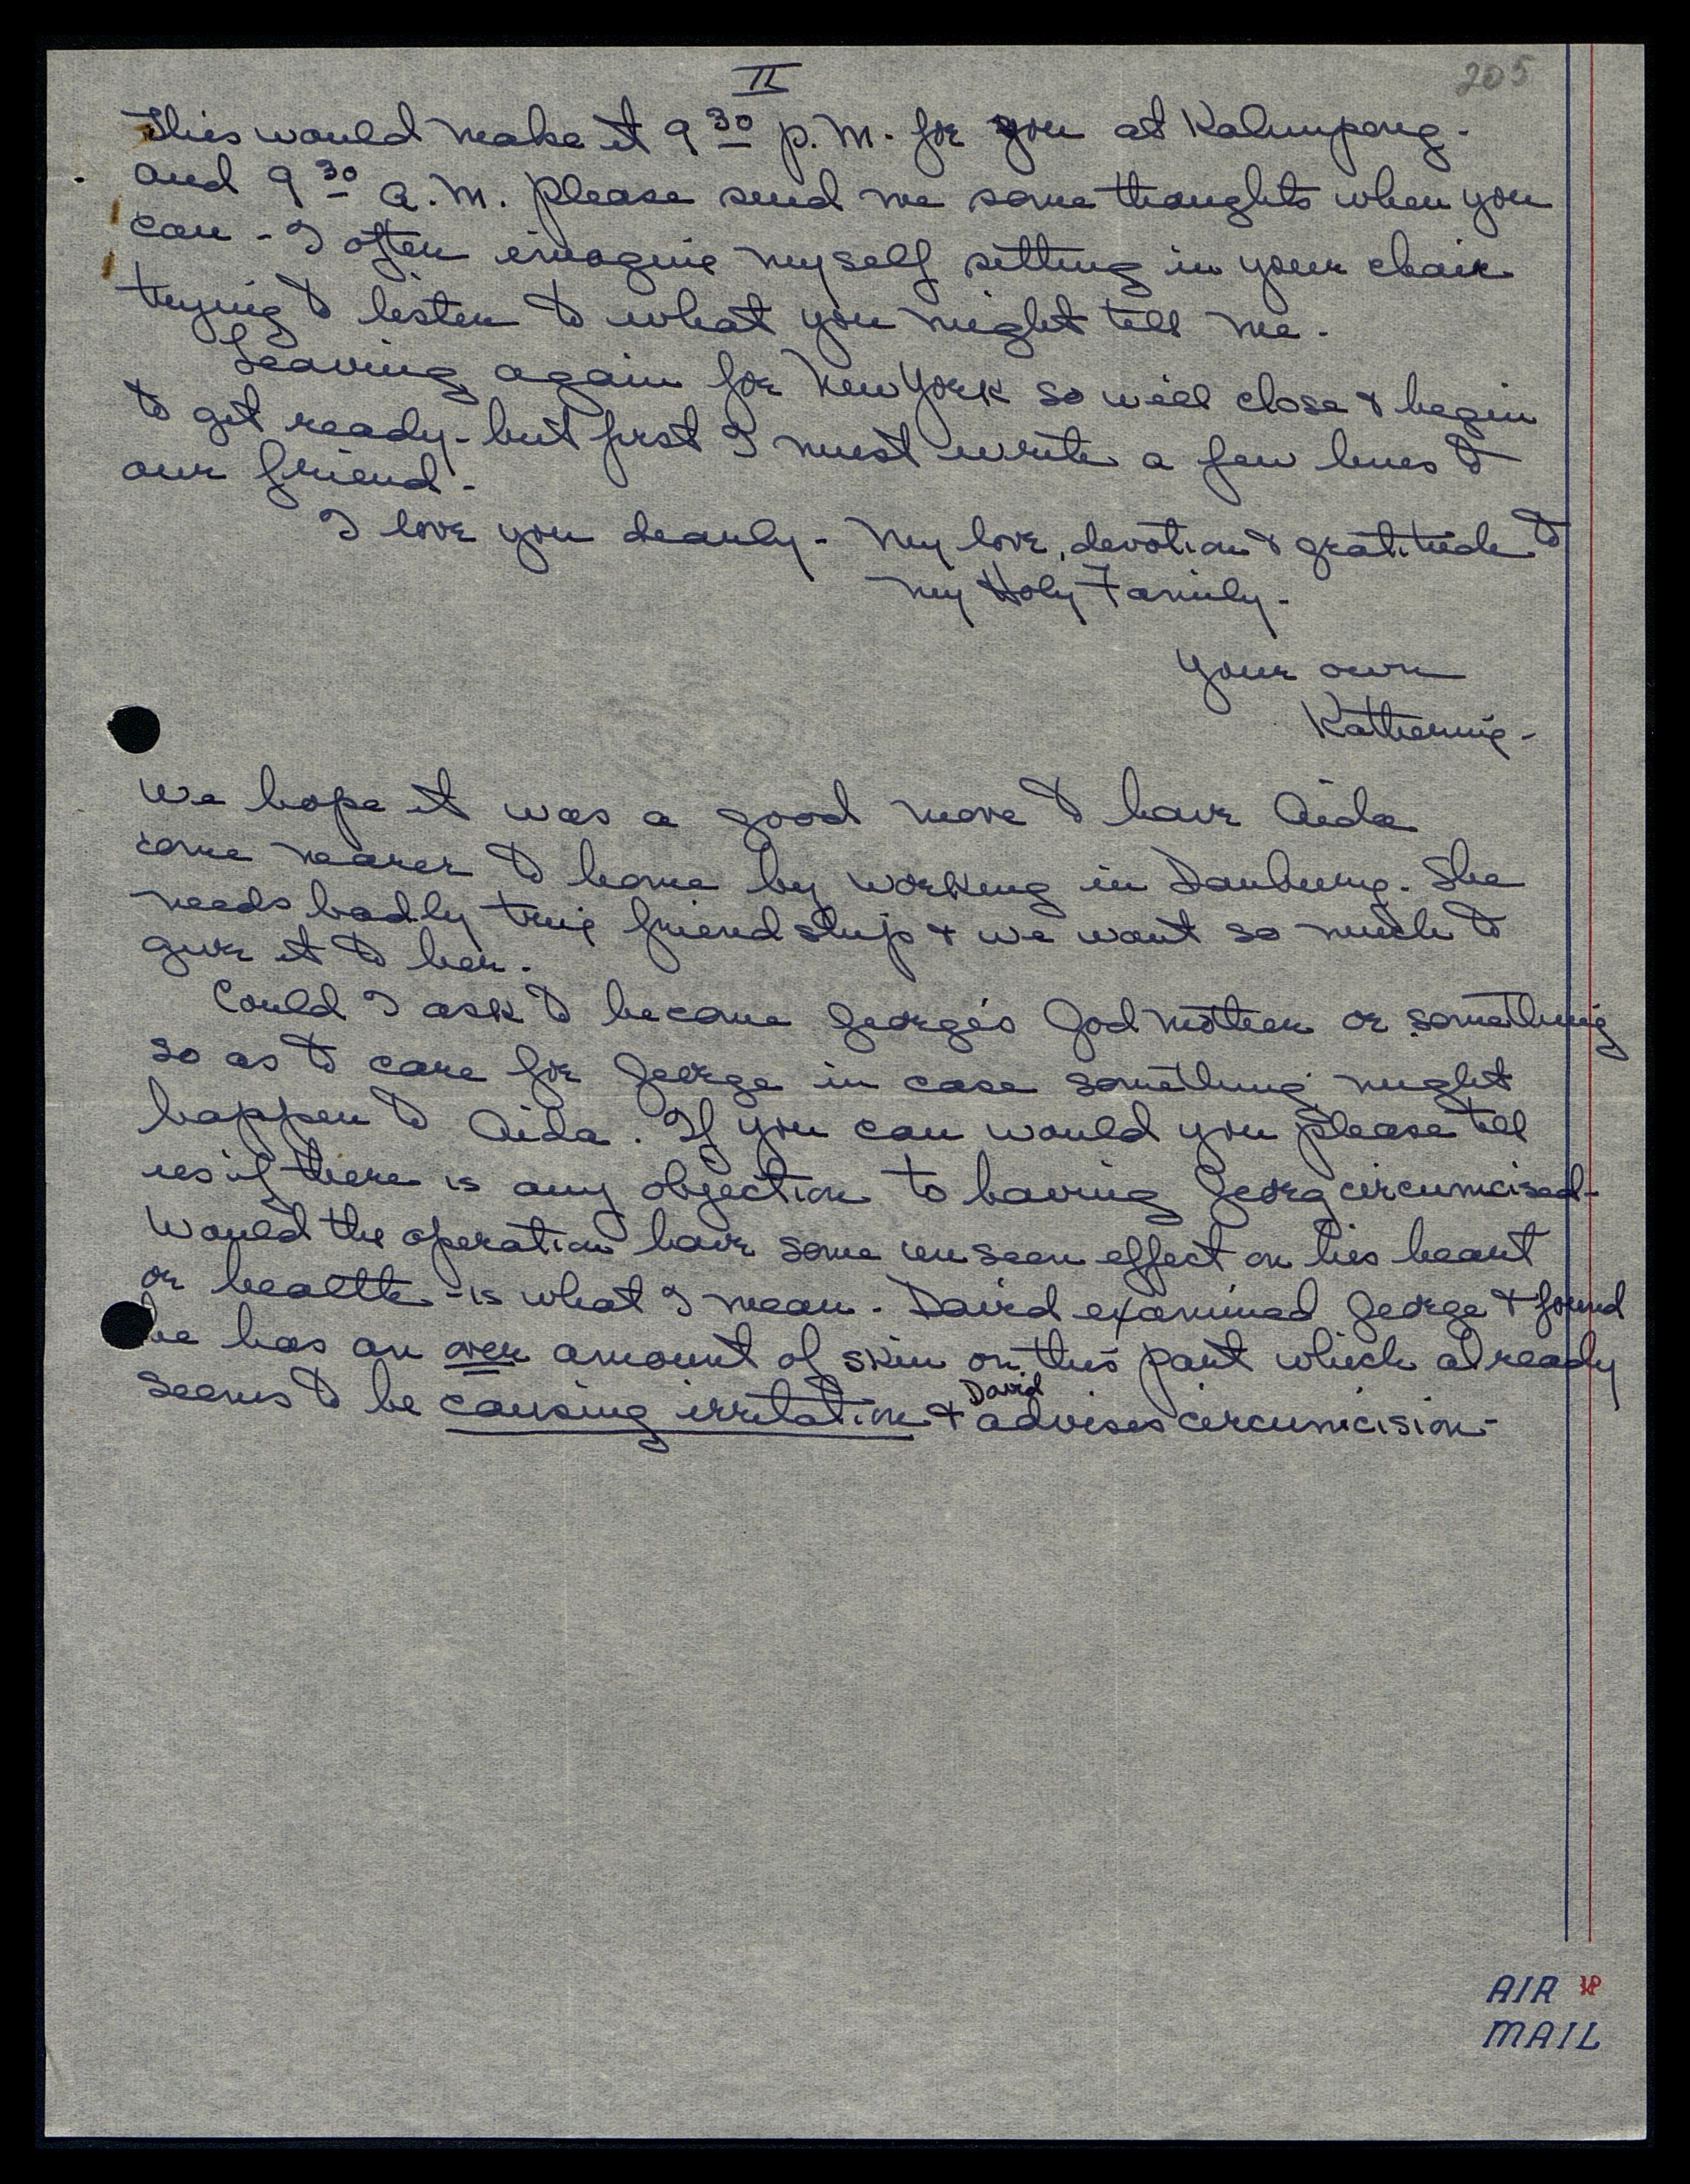 II
205
This would make it 9 30 p.m. for you at Kalimpong.
and 9 30 a.m. please send me some thoughts when you
can - I often imagine myself sitting in your chair
trying to listen to what you might tell me.
Leaving again for New York so will close & begin
to get ready - but first I must write a few lines to
our friend -
I love you dearly - My love, devotion & gratitude to
my Holy Family -
Your own
Katherine -
We hope it was a good move to have Aida
come nearer to home by working in Danbury. She
needs badly true friendship & we want so much to
give it to her.
Could I ask to become George's God mother or something
so as to care for George in case something might
happen to Aida. If you can would you please tell
us if there is any objection to having Georg circumcised -
Would the operation have some unseen effect on his heart
or health - is what I mean - David examined George & found
he has an over amount of skin on this part which already
seems to be causing irritation & David advises circumcision -
AIR
MAIL